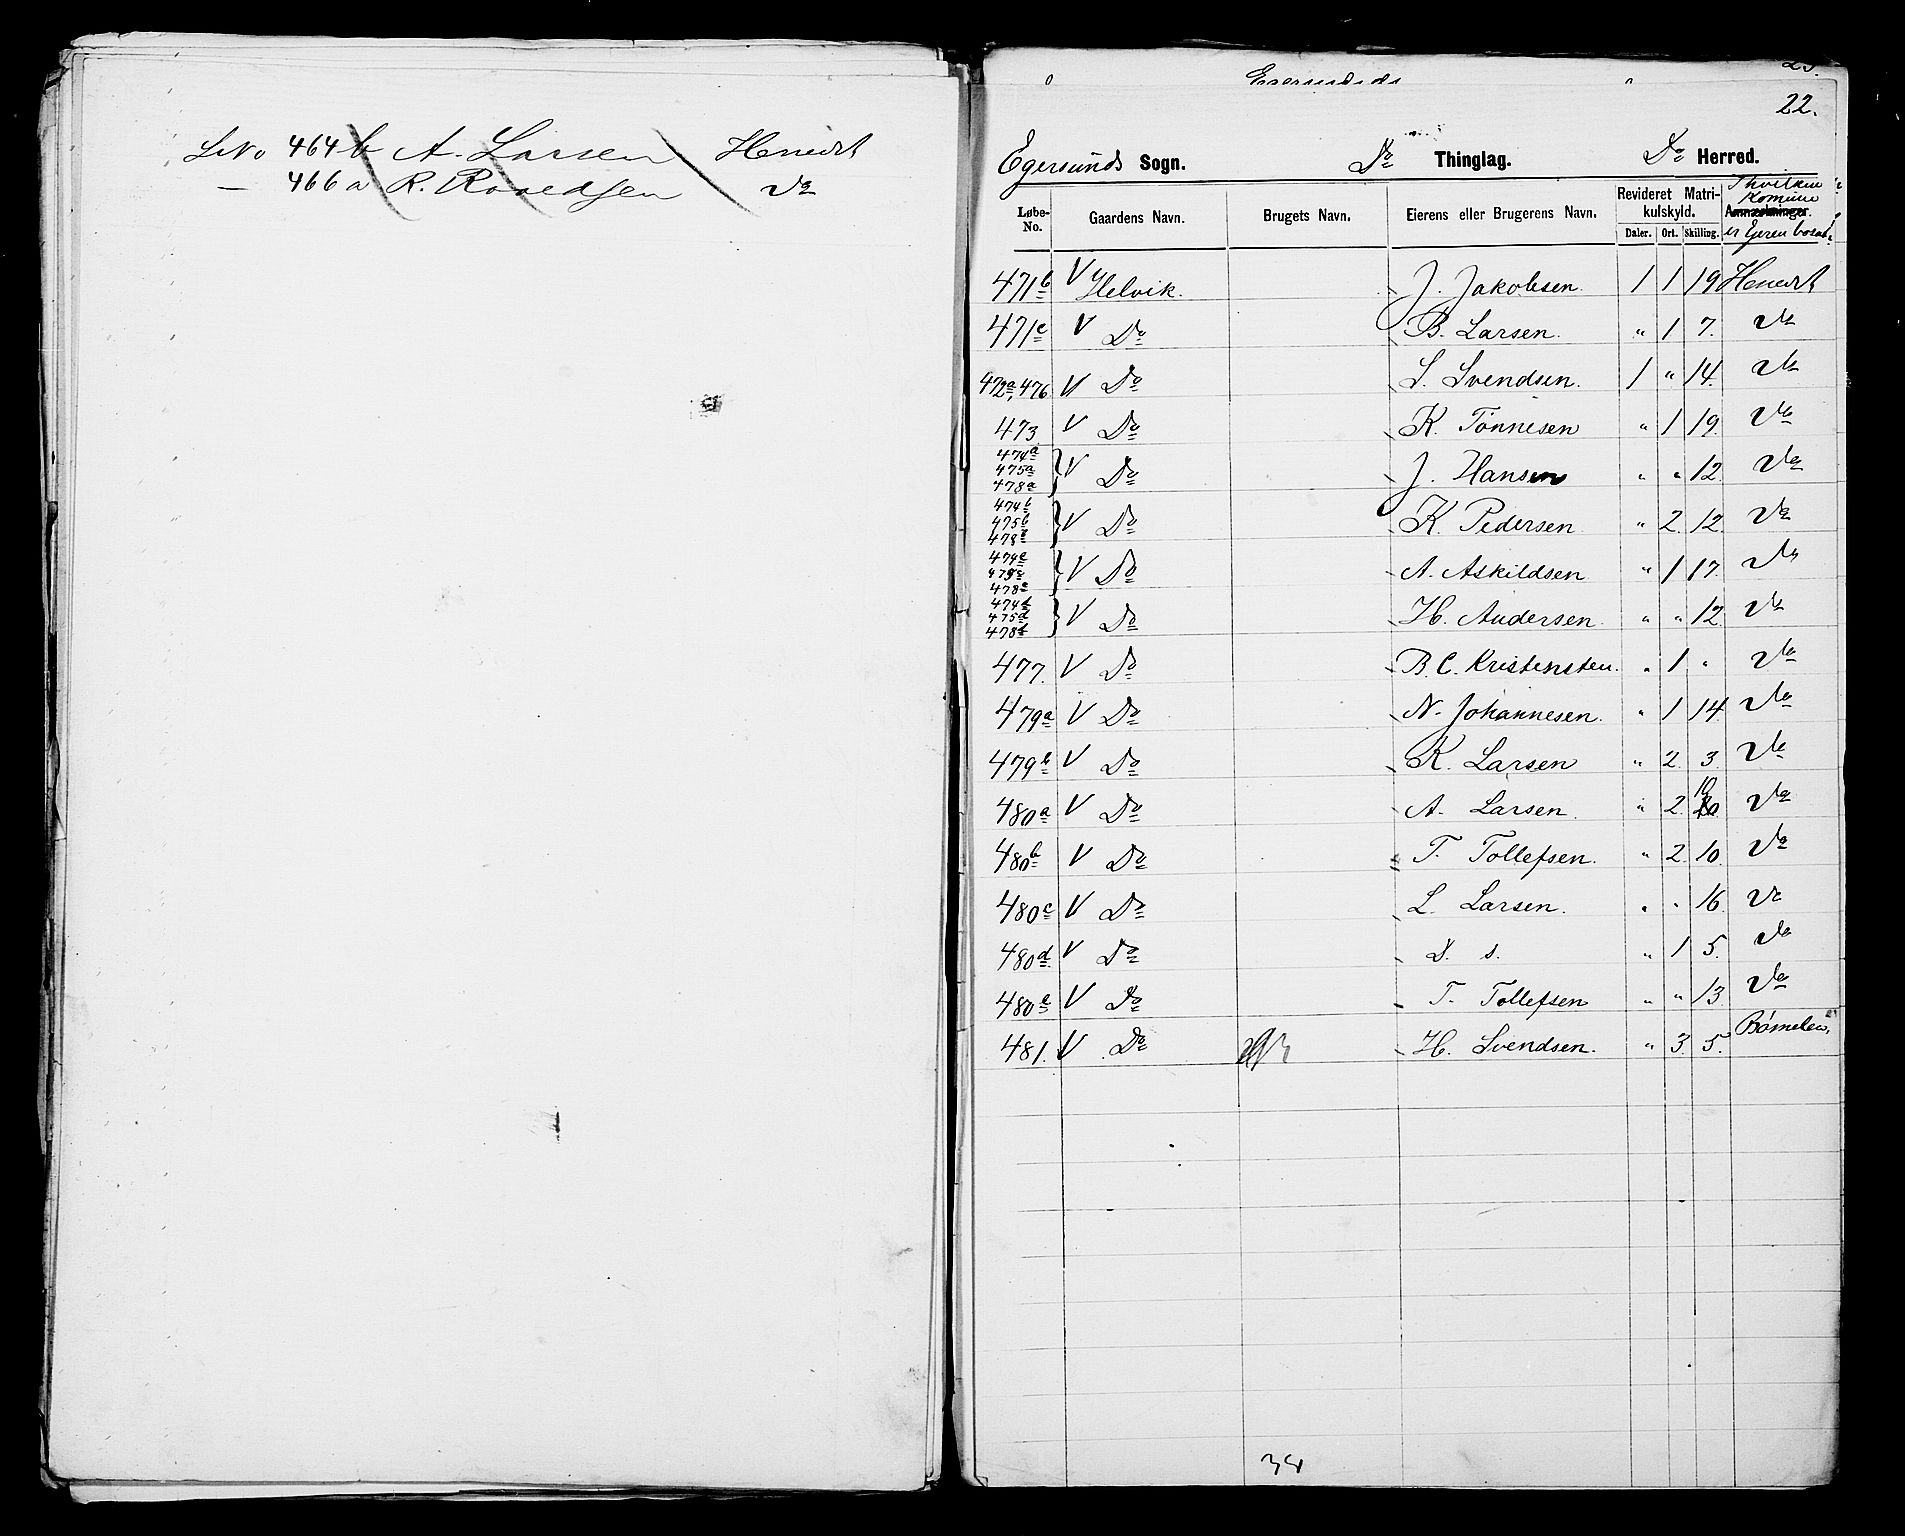 LNo 464 b A. Larsen Herredt
— 466 a R. Roaldsen Do
22.
Egersunds Sogn. Do Thinglag. Do Herred.
Løbe-No. Gaardens Navn. Brugets Navn. Eierens eller Brugerens Navn. Revideret Matrikulskyld. Daler. Ort. Skilling. Anmærkninger. I hvilken Komune er Ejeren bosat
471b V Helvik. J. Jakobsen. 1 1 19 Herredt
471c V Do B. Larsen. " 1 7. Do
472a, 476 V Do S. Svendsen. 1 " 14. Do
473 V Do K. Tønnesen " 1 19. Do
474a 475a 478a } V Do J. Hansen " " 12. Do
474b 475b 478b } V Do K. Pedersen " 2. 12. Do
474c 475c 478c } V Do A. Askildsen " 1 17. Do
474d 475d 478d } V Do H. Andersen. " " 12. Do
477. V Do B. C. Kristensten. " 1 " Do
479a V Do N. Johannesen. " 1 14 Do
479b V Do K. Larsen " 2. 3. Do
480a V Do A. Larsen. " 2. Do
480b V Do T. Tollefsen. " 2. 10. Do
480c V Do L. Larsen. " " 16. Do
480d V Do D. s. " 1 5. Do
480e V Do T. Tollefsen " " 13. Do
481. V Do H. Svendsen. " 3 5. Bømelen
34